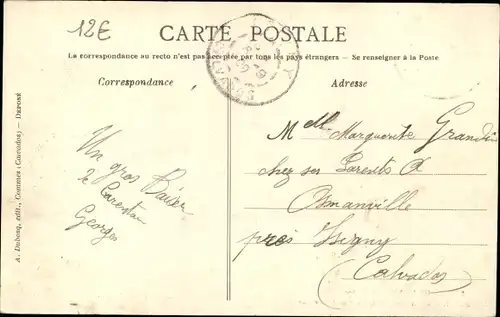 12€
CARTE POSTALE
La correspondance au recto n'est pas acceptée par tous les pays étrangers — Se renseigner à la Poste
Correspondance
Adresse
A. Dubosq, édit., Commes (Calvados) — DÉPOSÉ
Mlle Marguerite Grandin
chez ses Parents à
Osmanville
près Isigny
(Calvados)
Un gros Baiser
de Carentan
Georges